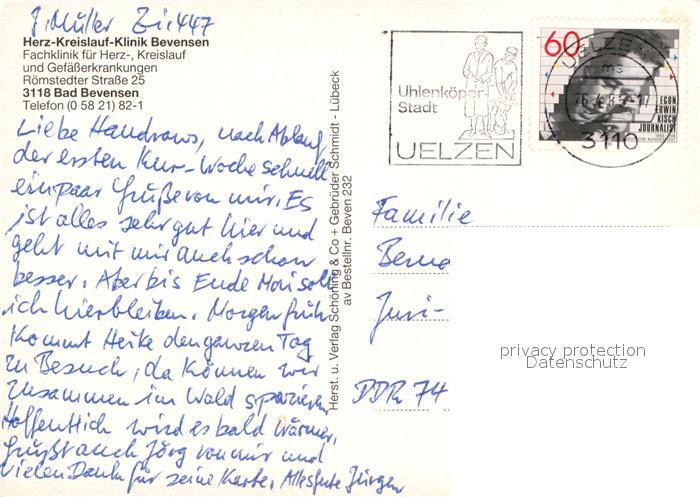 J. Müller Zi. 447
Herz-Kreislauf-Klinik Bevensen
Fachklinik für Herz-, Kreislauf
und Gefäßerkrankungen
Römstedter Straße 25
3118 Bad Bevensen
Telefon (0 58 21) 82-1
Liebe Handraws, nach Ablauf
der ersten Kur-Woche schnell
ein paar Grüße von mir. Es
ist alles sehr gut hier und
geht mit mir auch schon
besser. Aber bis Ende Mai soll
ich hierbleiben. Morgen früh
kommt Heike den ganzen Tag
zu Besuch, da können wir
zusammen im Wald spazieren
Hoffentlich wird es bald wärmer.
Grüßt auch Jörg von mir und
vielen Dank für seine Karte. Alles Gute Jürgen
Herst. u. Verlag Schöning & Co + Gebrüder Schmidt - Lübeck
av Bestellnr. Beven 232
Uhlenköper-
Stadt
UELZEN
60
UELZEN
ms
3110
EGON
ERWIN
KISCH
JOURNALIST
Familie
DDR 74
privacy protection
Datenschutz